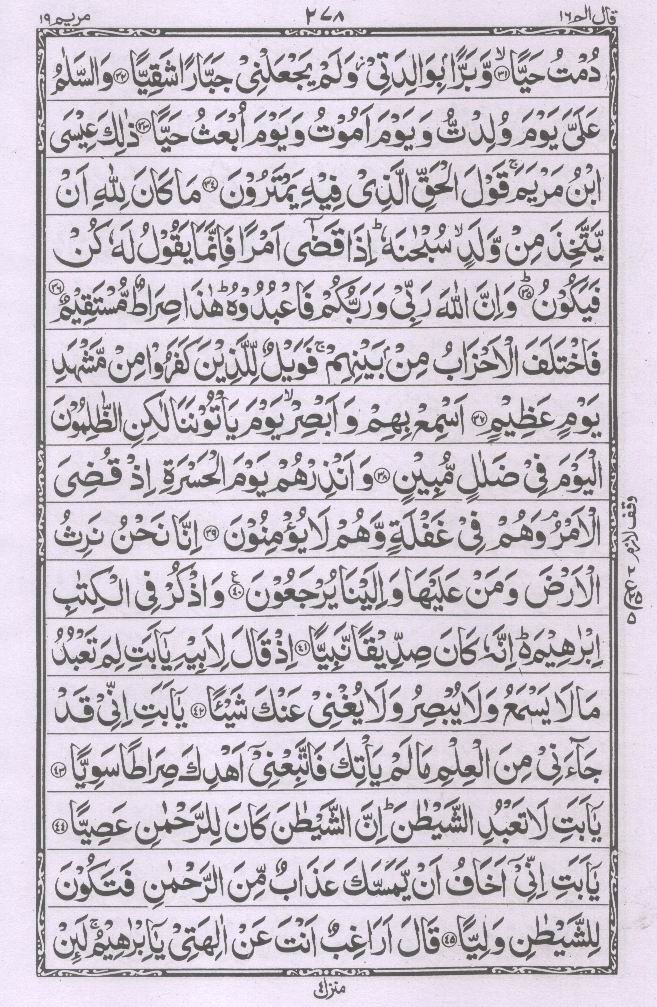 قال الم ١٦ ٢٧٨ مريم ١٩
دُمْتُ حَيًّا ﴿٣١﴾ وَّبَرًّۢا بِوَالِدَتِيْ وَلَمْ يَجْعَلْنِيْ جَبَّارًا شَقِيًّا ﴿٣٢﴾ وَالسَّلٰمُ
عَلَيَّ يَوْمَ وُلِدْتُّ وَيَوْمَ اَمُوْتُ وَيَوْمَ اُبْعَثُ حَيًّا ﴿٣٣﴾ ذٰلِكَ عِيْسَى
ابْنُ مَرْيَمَ ۚ قَوْلَ الْحَقِّ الَّذِيْ فِيْهِ يَمْتَرُوْنَ ﴿٣٤﴾ مَا كَانَ لِلّٰهِ اَنْ
يَّتَّخِذَ مِنْ وَّلَدٍ ۙ سُبْحٰنَهٗ ؕ اِذَا قَضٰٓى اَمْرًا فَاِنَّمَا يَقُوْلُ لَهٗ كُنْ
فَيَكُوْنُ ﴿٣٥﴾ؕ وَاِنَّ اللّٰهَ رَبِّيْ وَرَبُّكُمْ فَاعْبُدُوْهُ ؕ هٰذَا صِرَاطٌ مُّسْتَقِيْمٌ ﴿٣٦﴾
فَاخْتَلَفَ الْاَحْزَابُ مِنْۢ بَيْنِهِمْ ۚ فَوَيْلٌ لِّلَّذِيْنَ كَفَرُوْا مِنْ مَّشْهَدِ
يَوْمٍ عَظِيْمٍ ﴿٣٧﴾ اَسْمِعْ بِهِمْ وَاَبْصِرْ ۙ يَوْمَ يَاْتُوْنَنَا لٰكِنِ الظّٰلِمُوْنَ
الْيَوْمَ فِيْ ضَلٰلٍ مُّبِيْنٍ ﴿٣٨﴾ وَاَنْذِرْهُمْ يَوْمَ الْحَسْرَةِ اِذْ قُضِيَ
الْاَمْرُ ۘ وَهُمْ فِيْ غَفْلَةٍ وَّهُمْ لَا يُؤْمِنُوْنَ ﴿٣٩﴾ اِنَّا نَحْنُ نَرِثُ
الْاَرْضَ وَمَنْ عَلَيْهَا وَاِلَيْنَا يُرْجَعُوْنَ ﴿٤٠﴾ع وَاذْكُرْ فِي الْكِتٰبِ
اِبْرٰهِيْمَ ؕ۬ اِنَّهٗ كَانَ صِدِّيْقًا نَّبِيًّا ﴿٤١﴾ اِذْ قَالَ لِاَبِيْهِ يٰٓاَبَتِ لِمَ تَعْبُدُ
مَا لَا يَسْمَعُ وَلَا يُبْصِرُ وَلَا يُغْنِيْ عَنْكَ شَيْـًٔا ﴿٤٢﴾ يٰٓاَبَتِ اِنِّيْ قَدْ
جَآءَنِيْ مِنَ الْعِلْمِ مَا لَمْ يَاْتِكَ فَاتَّبِعْنِيْٓ اَهْدِكَ صِرَاطًا سَوِيًّا ﴿٤٣﴾
يٰٓاَبَتِ لَا تَعْبُدِ الشَّيْطٰنَ ؕ اِنَّ الشَّيْطٰنَ كَانَ لِلرَّحْمٰنِ عَصِيًّا ﴿٤٤﴾
يٰٓاَبَتِ اِنِّيْٓ اَخَافُ اَنْ يَّمَسَّكَ عَذَابٌ مِّنَ الرَّحْمٰنِ فَتَكُوْنَ
لِلشَّيْطٰنِ وَلِيًّا ﴿٤٥﴾ قَالَ اَرَاغِبٌ اَنْتَ عَنْ اٰلِهَتِيْ يٰٓاِبْرٰهِيْمُ ۚ لَئِنْ
وقف لازم
ع ٥
منزل ٤